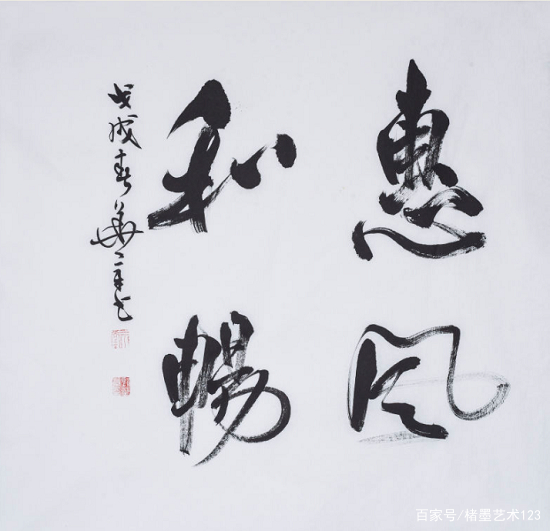 惠风
和暢
戊戌春
百家号/楮墨艺术123